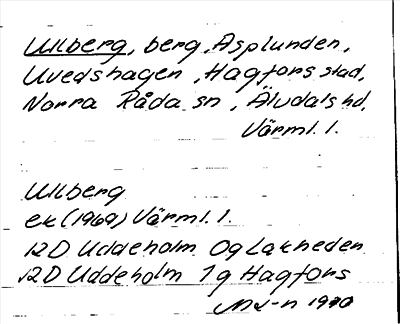 Ulberg, berg, Asplunden,
Uvedshagen, Hagfors stad,
Norra Råda sn, Älvdals hd,
Värml. l.
Ulberg
ek (1969) Värml. l.
12D Uddeholm 0g Lakheden
12D Uddeholm 1g Hagfors
1970